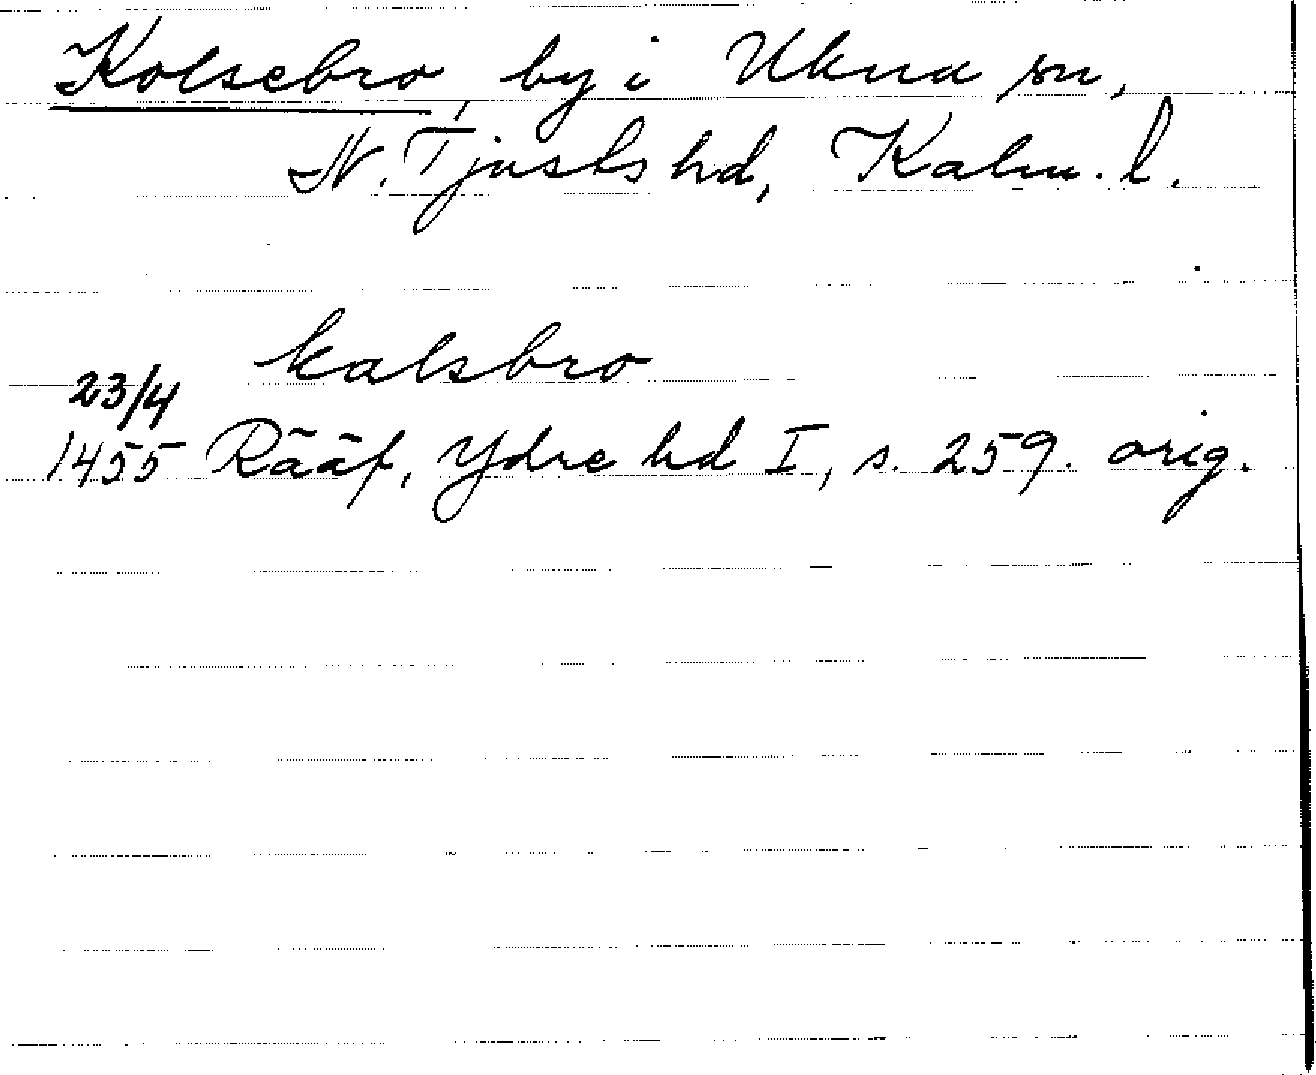 Kolsebro, by i Ukna sn,
N. Tjusts hd, Kalm. l.
kalsbro
23/4
1455 Rääf, Ydre hd I, s. 259. orig.